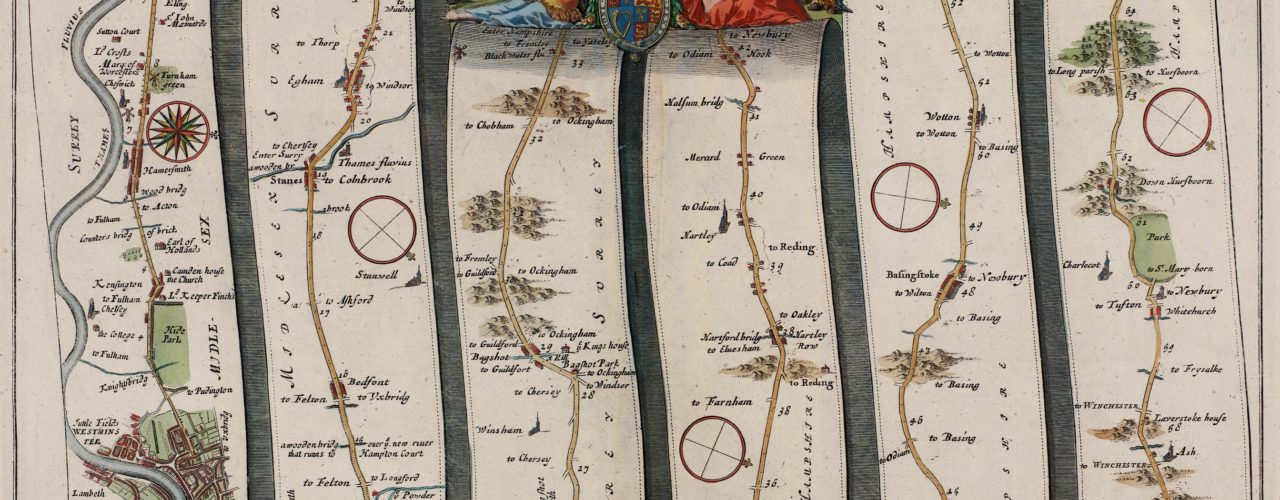 FLUVIUS
THAMES
SURREY
Eling
St. John
Mainards
Sutton Court
Ld. Crofts
Marq. of
Worcesters
Cheswick
8
Turnham
green
7
Hamersmith
wood bridg
to Acton
to Fulham
Counters bridg of brick
Earl of
Hollands
6
Camden house
the Church
Kensington
Ld. Keeper Finch's
to Fulham
Chelsey
the College
4
Hide
Park
to Fulham
Knightsbridg
to Padington
Tuttle Fields
WESTMINS
TER
Lambeth
to Uxbridg
MIDLE-
SEX
to
Windsor
21
to Thorp
Egham
to Windsor
20
to Chertsey
Enter Surry
a wooden br.
Thames fluvius
Stanes
19
to Colnbrook
abrook
18
Stanwell
to Ashford
17
16
Bedfont
to Felton
to Uxbridg
a wooden bridg
over ye. new river
that runs to
Hampton Court
to Felton
to Longford
to Powder
SURREY
MIDLESEX
Enter Hampshire
to Fremley
to Yateley
Blackwater flu.
33
to Ockingham
to Chobham
32
to Fremley
to Guildford
to Ockingham
30
to Ockingham
to Guildford
29
ye. Kings house
Bagshot
Rill
Bagshot Park
to Guildfort
to Ockingham
to Windsor
to Chersey
28
Winsham
to Chersey
27
SURREY
to Newbury
to Odiam
42
Hook
Halsum bridg
41
Merard
Green
40
to Odiam
Hartley
to Reding
to Coad
39
to Oakley
Hartford bridg
38
Hartley
Row
to Eluesham
to Reding
to Farnham
38
36
HAMPSHIRE
52
to Wotton
51
Wotton
to Wotton
to Basing
50
49
Basingstoke
to Newbury
to Wilton
48
to Basing
to Basing
46
to Basing
to Odiam
HAMPSHIRE
to Long parish
to Hursborn
63
61
Down Hursborn
61
Park
Charlecot
to St. Mary-born
60
to Newbury
to Tufton
Whitchurch
59
to Frysalke
to WINCHESTER
Laverstoke house
58
Ash
to WINCHESTER